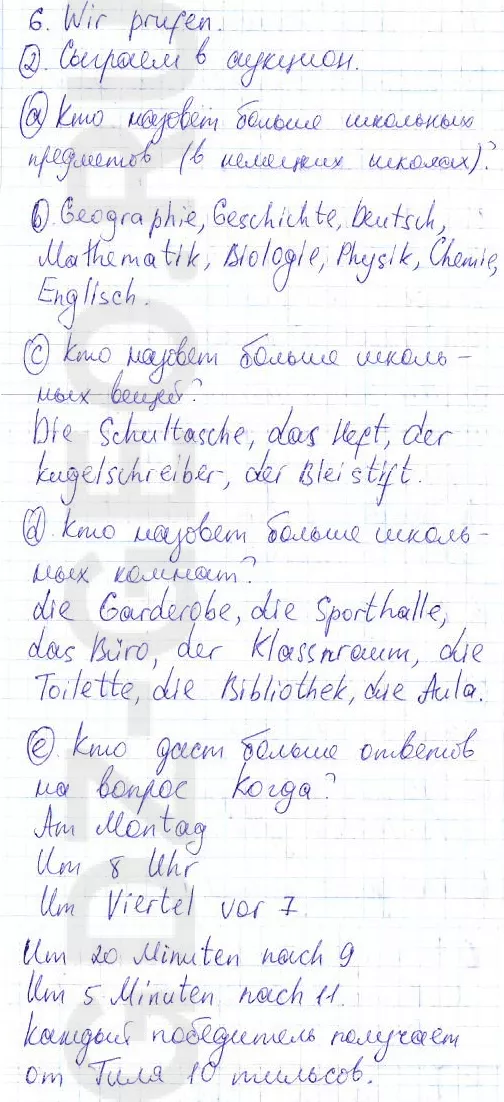 6. Wir prüfen.
2. Сыграем в аукцион.
a Кто назовёт больше школьных
предметов (в немецких школах)?
b. Geographie, Geschichte, Deutsch,
Mathematik, Biologie, Physik, Chemie,
Englisch.
c Кто назовет больше школь-
ных вещей?
Die Schultasche, das Heft, der
Kugelschreiber, der Bleistift.
d. Кто назовет больше школь-
ных комнат?
die Garderobe, die Sporthalle,
das Büro, der Klassnraum, die
Toilette, die Bibliothek, die Aula.
e. Кто даст больше ответов
на вопрос Когда?
Am Montag
Um 8 Uhr
Um Viertel vor 7.
Um 20 Minuten nach 9
Um 5 Minuten nach 11.
Каждый победитель получает
от Тиля 10 тильсов.
GDZ-GEO.RU